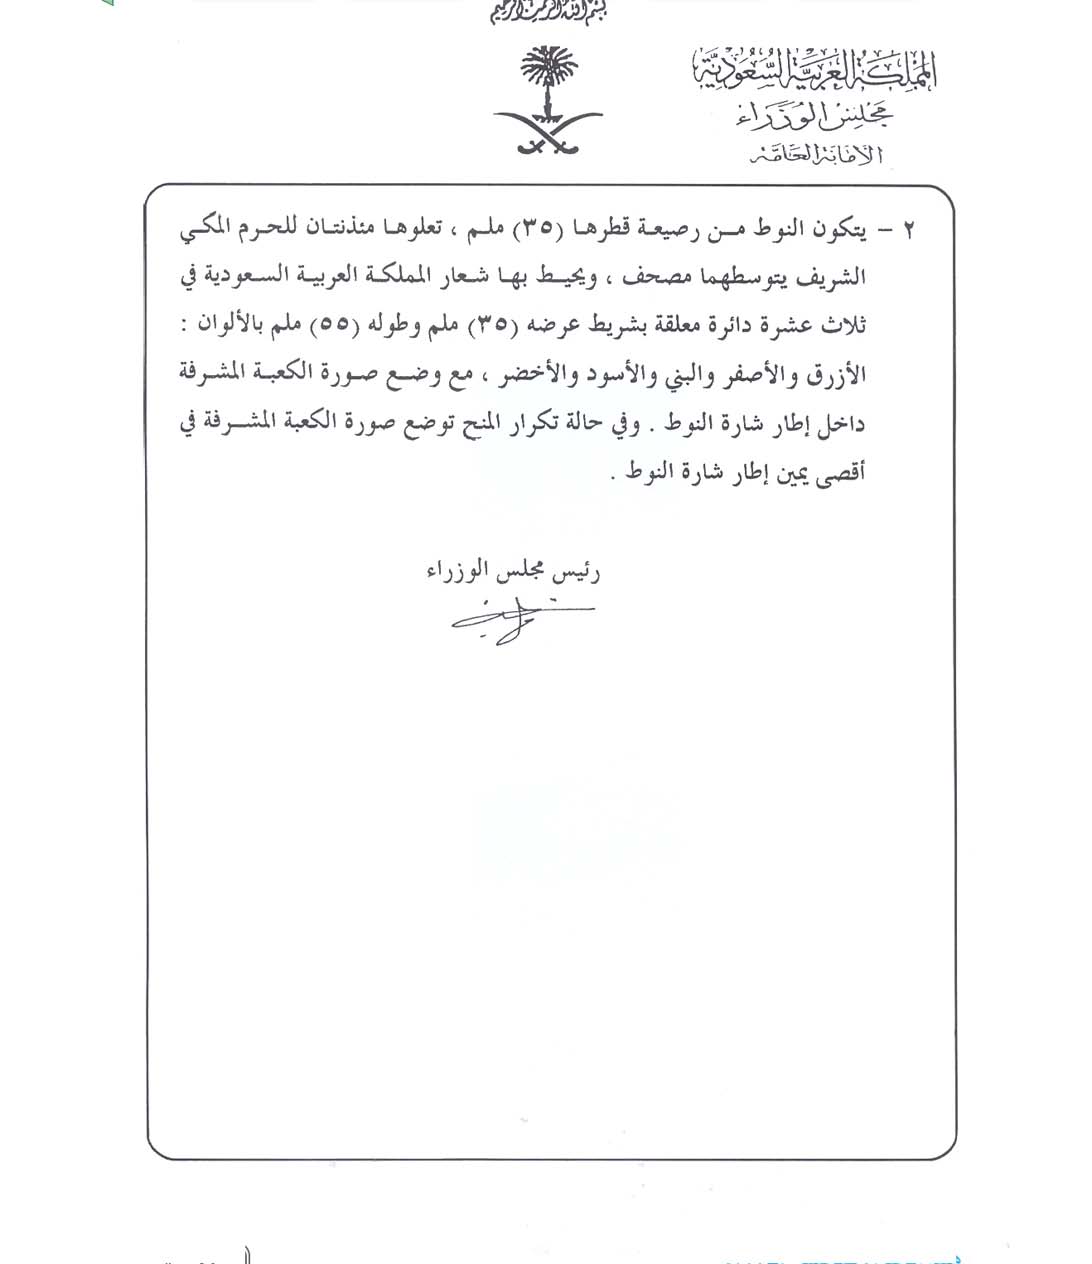 بسم الله الرحمن الرحيم
المملكة العربية السعودية
مجلس الوزراء
الأمانة العامة
٢ – يتكون النوط من رصيعة قطرها (٣٥) ملم ، تعلوها مئذنتان للحرم المكي
الشريف يتوسطهما مصحف ، ويحيط بها شعار المملكة العربية السعودية في
ثلاث عشرة دائرة معلقة بشريط عرضه (٣٥) ملم وطوله (٥٥) ملم بالألوان :
الأزرق والأصفر والبني والأسود والأخضر ، مع وضع صورة الكعبة المشرفة
داخل إطار شارة النوط . وفي حالة تكرار المنح توضع صورة الكعبة المشرفة في
أقصى يمين إطار شارة النوط .
رئيس مجلس الوزراء